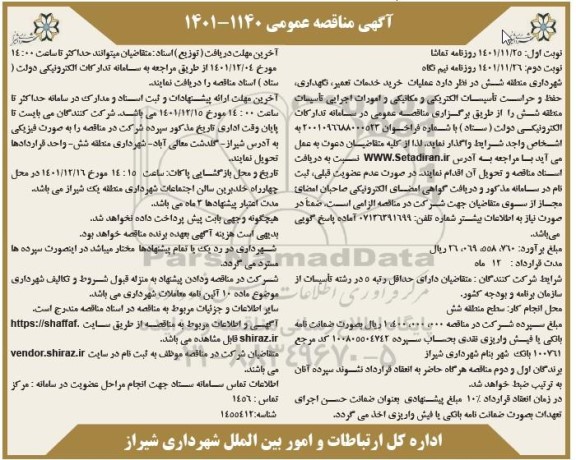 آگهی مناقصه عمومی ۱۱۴۰-۱۴۰۱
نوبت اول: ۱۴۰۱/۱۱/۲۵ روزنامه تماشا
نوبت دوم: ۱۴۰۱/۱۱/۲۶ روزنامه نیم نگاه
شهرداری منطقه شش در نظر دارد عملیات خرید خدمات تعمیر، نگهداری،
حفظ و حراست تأسیسات الکتریکی و مکانیکی و امورات اجرایی تأسیسات
منطقه شش را از طریق برگزاری مناقصه عمومی در سامانه تدارکات
الکترونیکی دولت (ستاد) با شماره فراخوان ۲۰۰۱۰۹۶۷۸۸۰۰۰۵۲۳ به
اشخاص واجد شرایط واگذار نماید. لذا از کلیه متقاضیان دعوت به عمل
می آید با مراجعه به آدرس WWW.Setadiran.ir نسبت به دریافت
اسناد مناقصه و تحویل آن اقدام نمایند. در صورت عدم عضویت قبلی، ثبت
نام در سامانه مذکور و دریافت گواهی امضای الکترونیکی صاحبان امضای
مجاز از سوی متقاضیان جهت شرکت در مناقصه الزامی است. ضمناً در
صورت نیاز به اطلاعات بیشتر شماره تلفن: ۰۷۱۳۶۳۹۱۶۹۹ آماده پاسخ گویی
می‌باشد.
مبلغ برآورد: ۲۶,۰۶۹,۵۵۸,۷۶۰ ریال
مدت قرارداد : ۱۲ ماه
شرایط شرکت کنندگان : متقاضیان دارای حداقل رتبه ۵ در رشته تأسیسات از
سازمان برنامه و بودجه کشور.
محل انجام کار: سطح منطقه شش
مبلغ سپرده شرکت در مناقصه ۱,۴۰۰,۰۰۰,۰۰۰ ریال بصورت ضمانت نامه
بانکی یا فیش واریزی نقدی بحساب سپرده ۱۰۰۸۰۵۵۰۴۷۴۲ کد مرجع
۱۰۰۷۶۱ بانک شهر بنام شهرداری شیراز
برندگان اول و دوم مناقصه هرگاه حاضر به انعقاد قرارداد نشوند سپرده آنان
به ترتیب ضبط خواهد شد.
در زمان انعقاد قرارداد ۱۰٪ مبلغ پیشنهادی بعنوان ضمانت حسن اجرای
تعهدات بصورت ضمانت نامه بانکی یا فیش واریزی اخذ می گردد.
آخرین مهلت دریافت (توزیع) اسناد: متقاضیان میتوانند حداکثر تا ساعت ۱۴:۰۰
مورخ ۱۴۰۱/۱۲/۰۴ از طریق مراجعه به سامانه تدارکات الکترونیکی دولت (
ستاد) اسناد مناقصه را دریافت نمایند.
آخرین مهلت ارائه پیشنهادات و ثبت اسناد و مدارک در سامانه حداکثر تا
ساعت ۱۴:۰۰ مورخ ۱۴۰۱/۱۲/۱۵ می باشد. شرکت کنندگان می بایست تا
پایان وقت اداری تاریخ مذکور سپرده شرکت در مناقصه را به صورت فیزیکی
به آدرس شیراز- گلدشت معالی آباد- شهرداری منطقه شش- واحد قراردادها
تحویل نمایند.
تاریخ و محل بازگشایی پاکات: ساعت ۱۴:۱۵ مورخ ۱۴۰۱/۱۲/۱۶ در محل
چهارراه خلدبرین سالن اجتماعات شهرداری منطقه یک شیراز می باشد.
مدت اعتبار پیشنهادها ۳ ماه می باشد.
هیچگونه وجهی بابت پیش پرداخت داده نخواهد شد.
بدیهی است هزینه آگهی بعهده برنده مناقصه خواهد بود.
شهرداری در رد یک یا تمام پیشنهادها مختار میباشد در اینصورت سپرده ها
مسترد می گردد.
شرکت در مناقصه ودادن پیشنهاد به منزله قبول شروط و تکالیف شهرداری
موضوع ماده ۱۰ آئین نامه معاملات شهرداری می باشد.
سایر اطلاعات و جزئیات مربوط به مناقصه در اسناد مناقصه مندرج است.
آگهی و اطلاعات مربوط به مناقصه از طریق سایت https://shaffaf.
shiraz.ir قابل مشاهده می باشد.
متقاضیان شرکت در مناقصه موظف به ثبت نام در سایت vendor.shiraz.ir
می باشند.
اطلاعات تماس سامانه ستاد جهت انجام مراحل عضویت در سامانه : مرکز
تماس : ۱۴۵۶
شناسه: ۱۴۵۵۴۱۲
اداره کل ارتباطات و امور بین الملل شهرداری شیراز